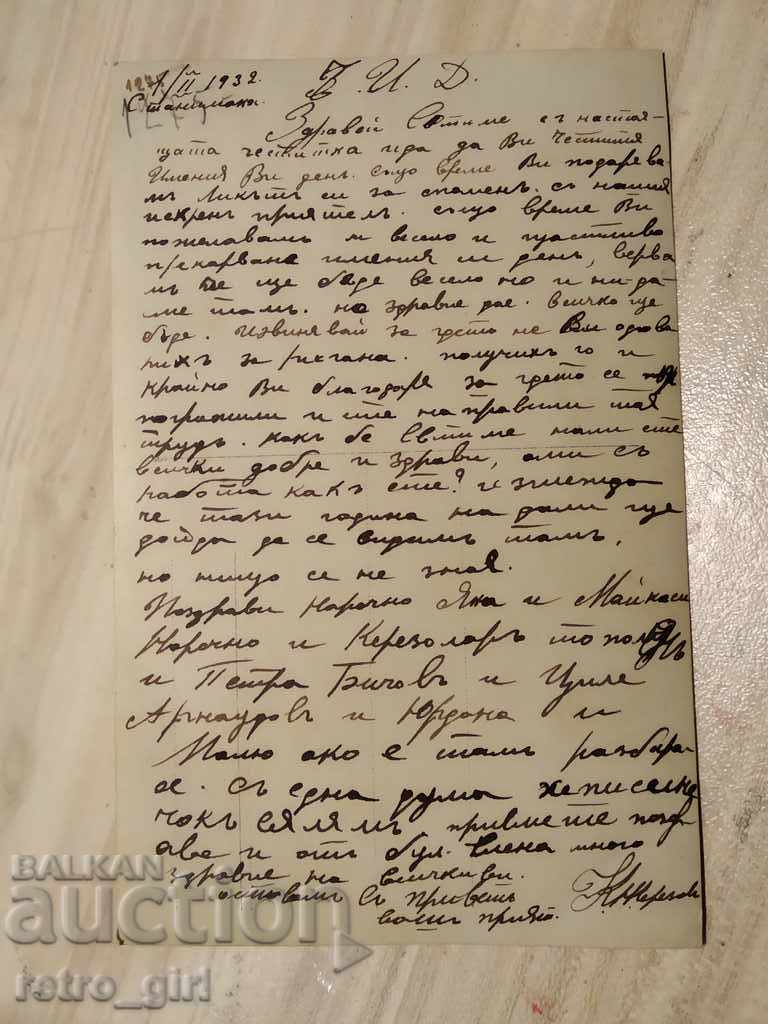 1/II 1932
Ч. И. Д.
Станимака.
Здравей Евтиме съ настоя-
щата честитка ида да Ви Честитя
Имения Ви день. също време Ви подарява-
мъ Ликътъ си за споменъ. съ нашия
искренъ приятель. също време Ви
пожелавамъ и весело и щастливо
прекарване имения си день, верва
мъ че ще бъде весело но и ни да-
ме тамъ. но здравие дае. всичко ще
бъде. Извинявай за гдето не Ви
за получихъ го и
крайно Ви благодаря за гдето се
потрошили и сте направили тоя
трудъ. какъ бе Евтиме нали сте
всички добре и здрави, ами съ
работа какъ сте? Изглежда
че тази година на дали ще
дойда да се видимъ тамъ,
но нищо се не знае.
Поздрави Нарочно Яна и Майкаси
Нарочно и
и Петра Бичовъ и Циле
Арнаудовъ и Юрдана и
Малю ако е тамъ разбира
се. съ една дума хеписине
чокъ селямъ приемете позд-
аве и отъ бул. Елена много
здравие на всички ви.
оставамъ съ приветъ
вашъ прият.
BALKAN
auction
retro_girl